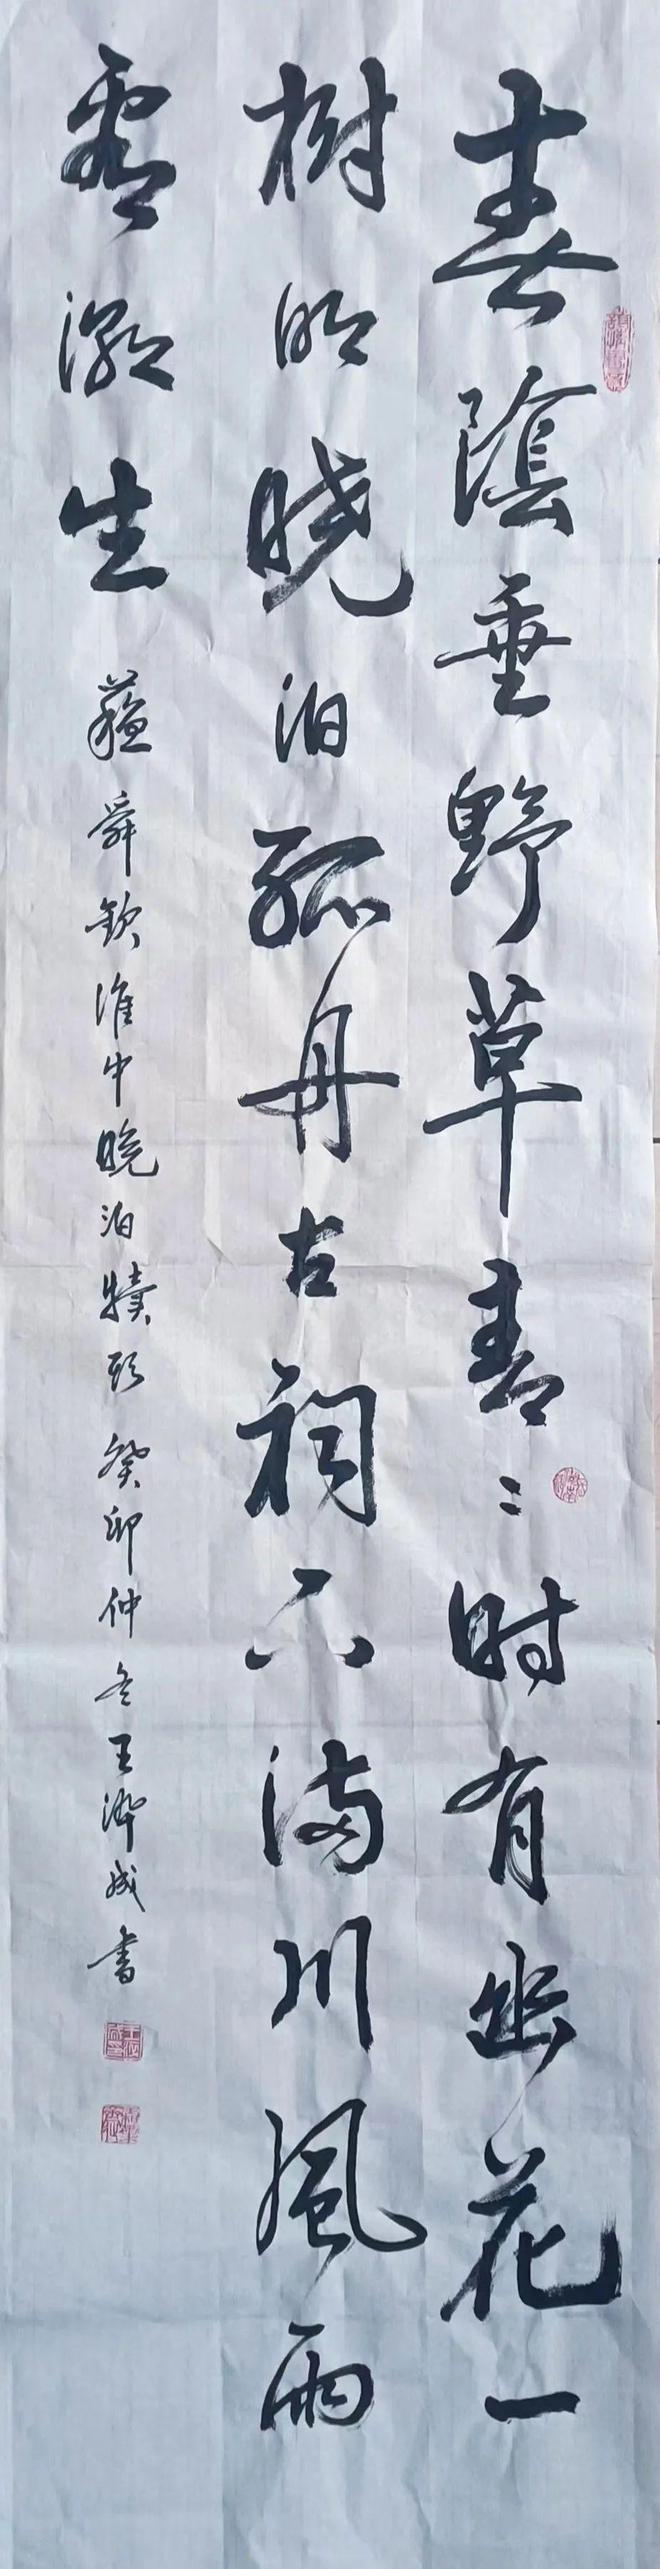 春陰垂野草青〻时有幽花一
樹明晚泊孤舟古祠下满川風雨
看潮生 蘇舜钦淮中晚泊犢头 癸卯仲冬王成書